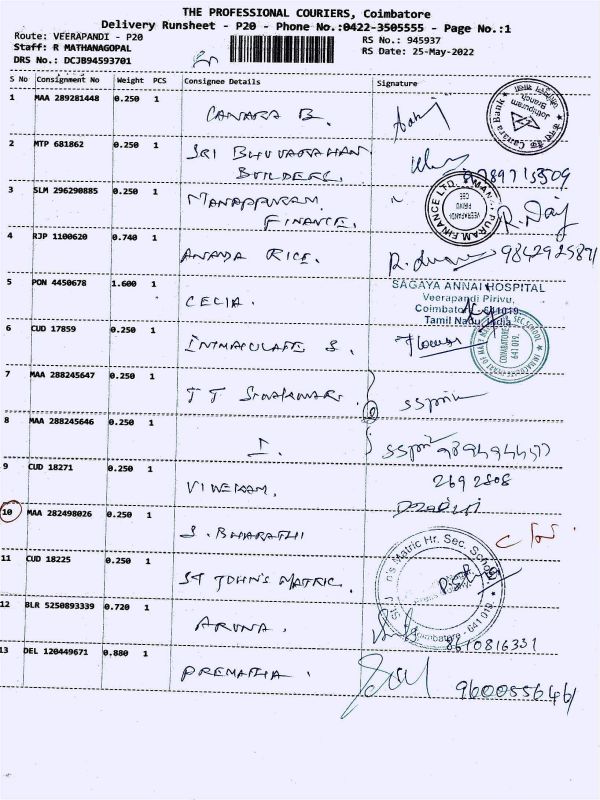 THE PROFESSIONAL COURIERS, Coimbatore
Delivery Runsheet - P20 - Phone No.:0422-3505555 - Page No.:1
Route: VEERAPANDI - P20 RS No.: 945937
Staff: R MATHANAGOPAL RS Date: 25-May-2022
DRS No.: DCJB94593701
S No Consignment No Weight PCS Consignee Details Signature
1 MAA 289281448 0.250 1 CANARA B. Canara Bank Jothipuram Branch
2 MTP 681862 0.250 1 SRI BHUVARAHAN BUILDERS.
3 SLM 296290885 0.250 1 MANAPPURAM FINANCE. VEERAPANDI PIRIVU
4 RJP 1100620 0.740 1 ANANDA RICE. 9842925891
5 PON 4450678 1.600 1 CECIA.
SAGAYA ANNAI HOSPITAL
Veerapandi Pirivu,
Coimbatore - 641019.
Tamil Nadu, India
6 CUD 17859 0.250 1 INTMACULATE S. COIMBATORE 641 019.
7 MAA 288245647 0.250 1 T T
8 MAA 288245646 0.250 1 I.
9 CUD 18271 0.250 1 VIWEKAM. 2692808
10 MAA 282498026 0.250 1 S. BHARATHI
11 CUD 18225 0.250 1 ST JOHN'S MATRIC. St. John's Matric Hr. Sec. School Coimbatore - 641 019.
12 BLR 5250893339 0.720 1 ARUNA. 8610816331
13 DEL 120449671 0.880 1 PREMATHA. 9600556461